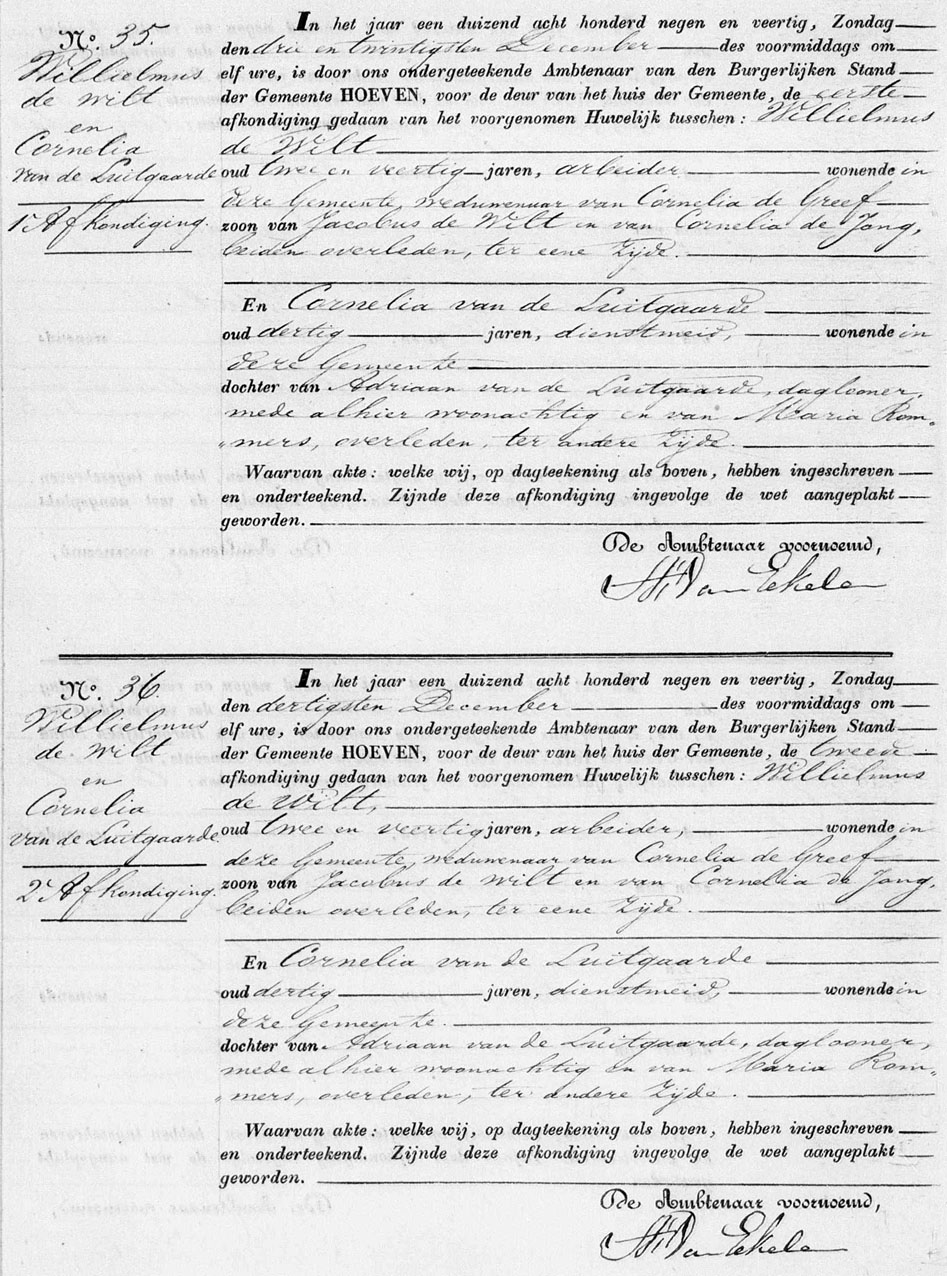 No. 35
Willielmus
de Wilt
en
Cornelia
van de Luitgaarde
1e Afkondiging.
In het jaar een duizend acht honderd negen en veertig, Zondag
den drie en twintigsten December des voormiddags om
elf ure, is door ons ondergeteekende Ambtenaar van den Burgerlijken Stand
der Gemeente HOEVEN, voor de deur van het huis der Gemeente, de eerste
afkondiging gedaan van het voorgenomen Huwelijk tusschen: Willielmus
de Wilt
oud twee en veertig jaren, arbeider wonende in
deze Gemeente, weduwenaar van Cornelia de Greef
zoon van Jacobus de Wilt en van Cornelia de Jong,
beiden overleden, ter eene Zijde.
En Cornelia van de Luitgaarde
oud dertig jaren, dienstmeid, wonende in
deze Gemeente
dochter van Adriaan van de Luitgaarde, daglooner,
mede alhier woonachtig en van Maria Rom„
„mers, overleden, ter andere Zijde.
Waarvan akte: welke wij, op dagteekening als boven, hebben ingeschreven
en onderteekend. Zijnde deze afkondiging ingevolge de wet aangeplakt
geworden.
De Ambtenaar voornoemd,
Van Ekelen
No. 36.
Willielmus
de Wilt
en
Cornelia
van de Luitgaarde
2e Afkondiging.
In het jaar een duizend acht honderd negen en veertig, Zondag
den dertigsten December des voormiddags om
elf ure, is door ons ondergeteekende Ambtenaar van den Burgerlijken Stand
der Gemeente HOEVEN, voor de deur van het huis der Gemeente, de tweede
afkondiging gedaan van het voorgenomen Huwelijk tusschen: Willielmus
de Wilt,
oud twee en veertig jaren, arbeider, wonende in
deze Gemeente, weduwenaar van Cornelia de Greef
zoon van Jacobus de Wilt en van Cornelia de Jong
beiden overleden, ter eene Zijde.
En Cornelia van de Luitgaarde
oud dertig jaren, dienstmeid, wonende in
deze Gemeente.
dochter van Adriaan van de Luitgaarde, daglooner,
mede alhier woonachtig en van Maria Rom„
„mers, overleden, ter andere Zijde.
Waarvan akte: welke wij, op dagteekening als boven, hebben ingeschreven
en onderteekend. Zijnde deze afkondiging ingevolge de wet aangeplakt
geworden.
De Ambtenaar voornoemd,
Van Ekelen